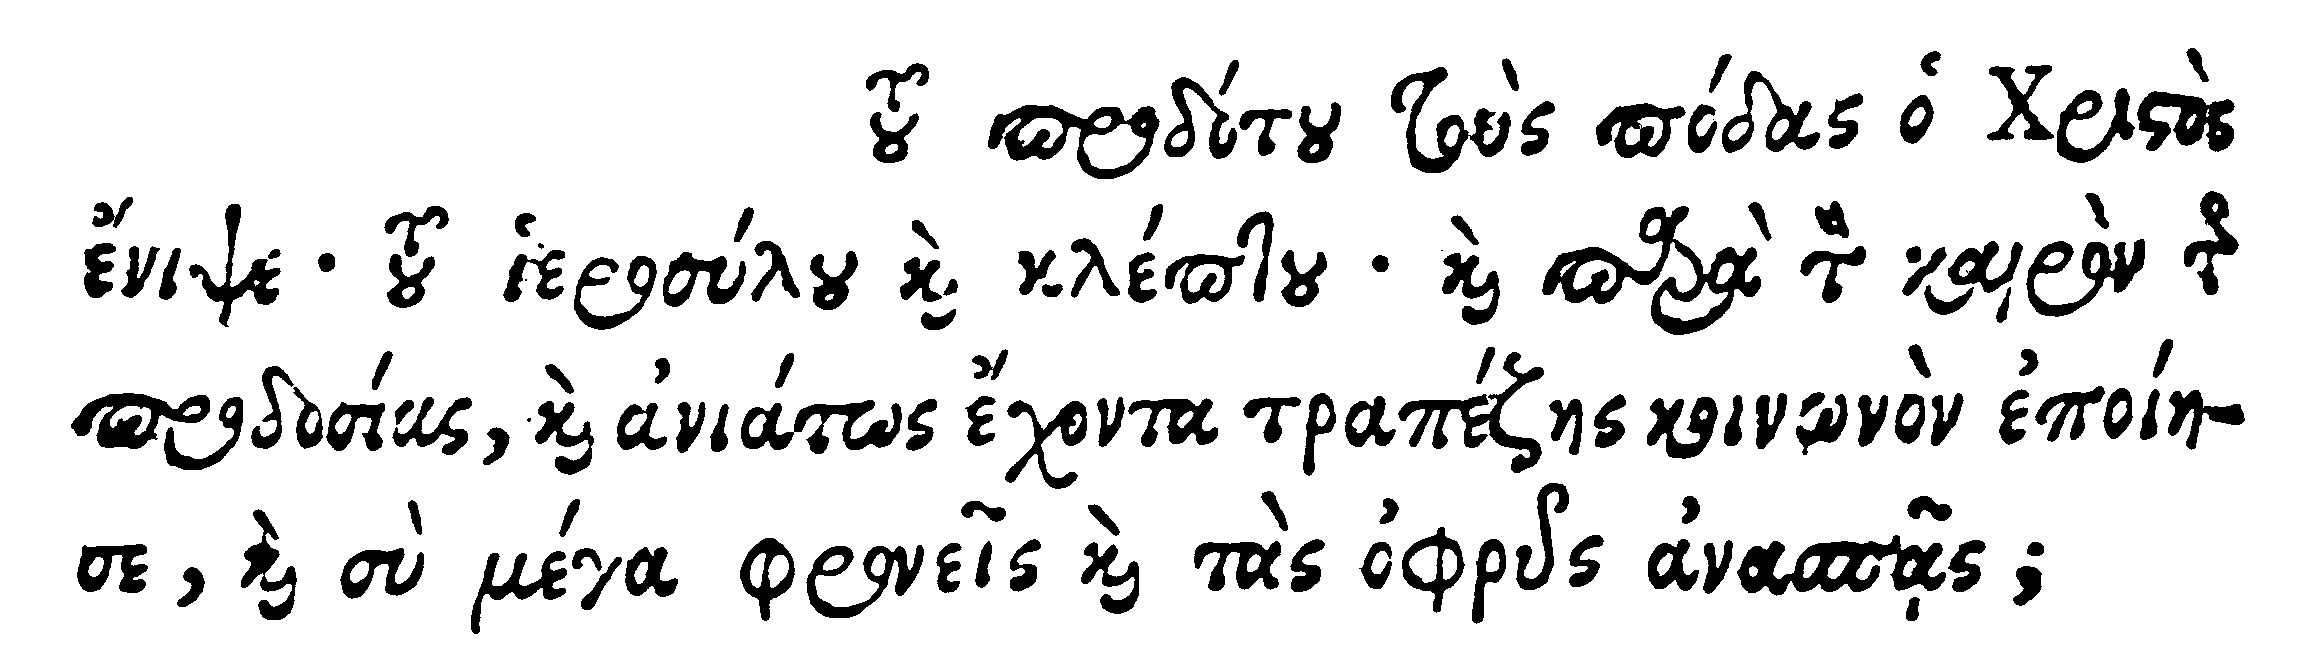 τοῦ προδότου τοὺς πόδας ὁ Χριστὸς
ἔνιψε · τοῦ ἱεροσύλου καὶ κλέπτου · καὶ παρὰ τὸν καιρὸν τῆς
προδοσίας, καὶ ἀνιάτως ἔχοντα τραπέζης κοινωνὸν ἐποίη-
σε, καὶ σὺ μέγα φρονεῖς καὶ τὰς ὀφρῦς ἀνασπᾷς;